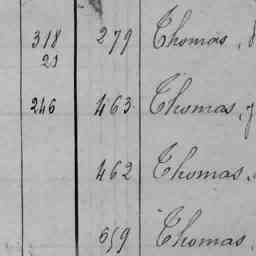 318 279 Thomas,
21
246 463 Thomas,
462 Thomas,
659 Thomas,